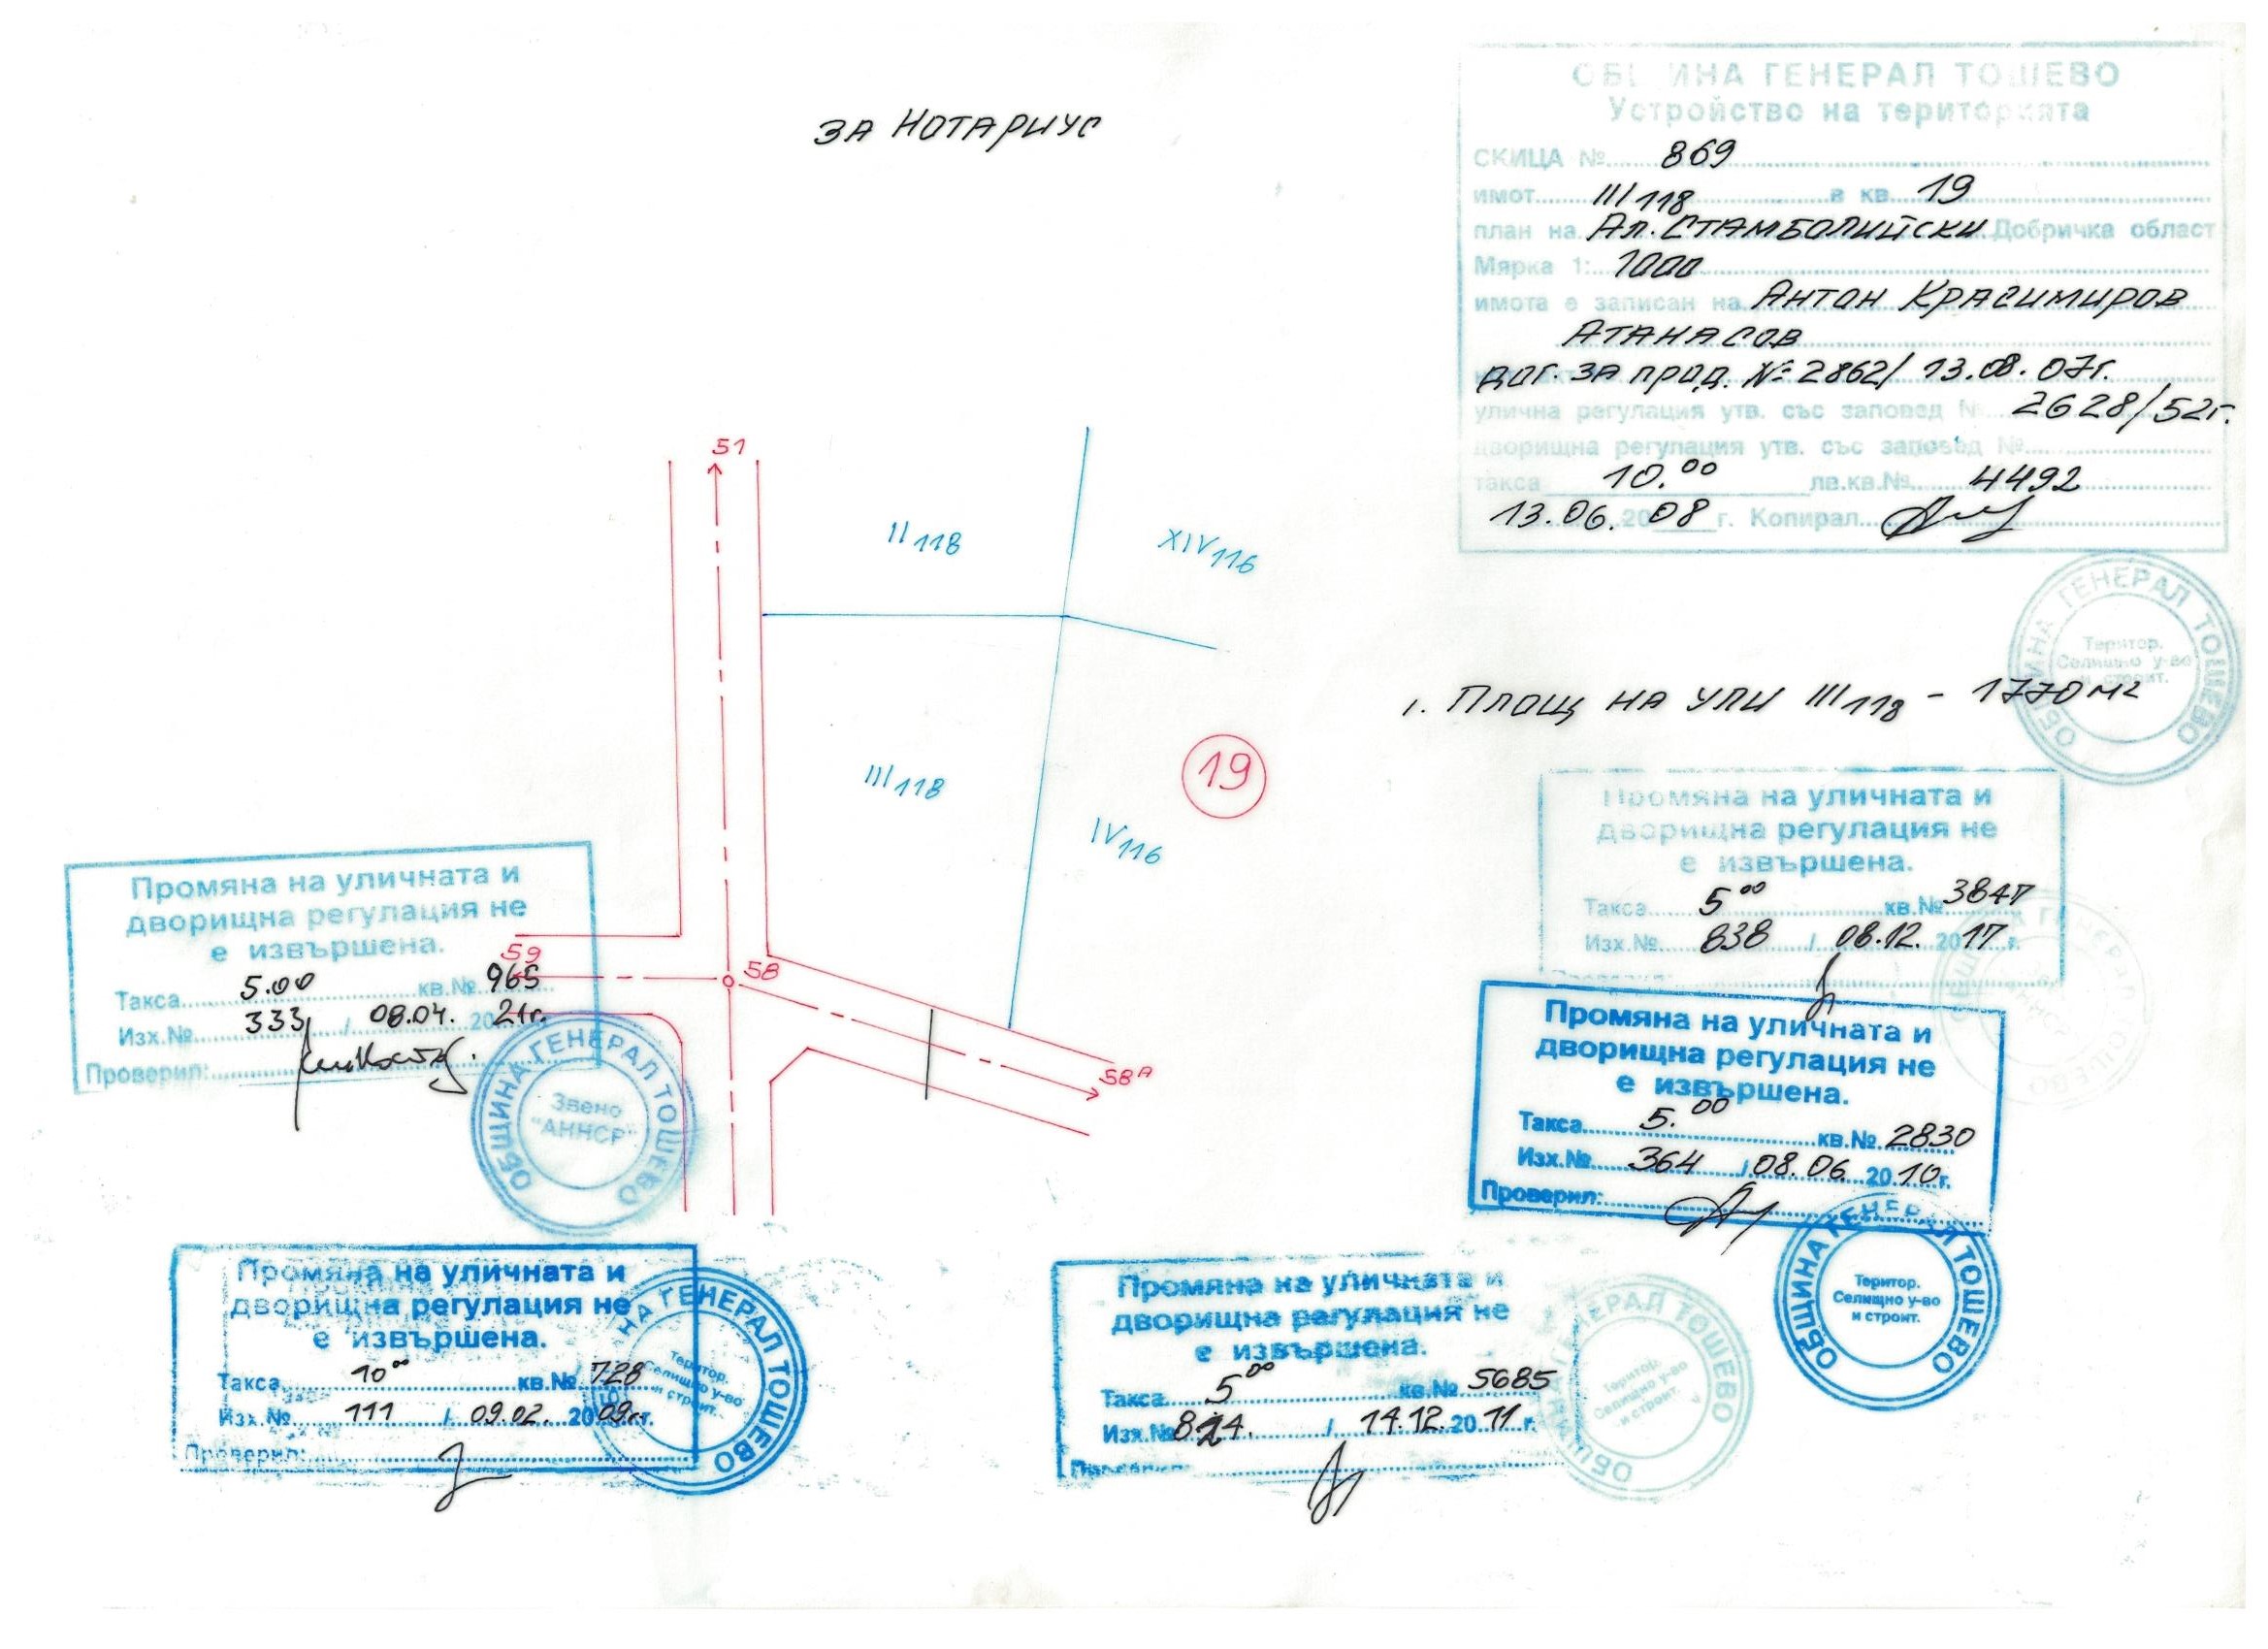 ЗА НОТАРИУС
ОБЩИНА ГЕНЕРАЛ ТОШЕВО
Устройство на територията
СКИЦА № 869
имот III118 в кв 19
план на Ал. Стамболийски Добричка област
Мярка 1: 1000
имота е записан на Антон Красимиров
Атанасов
дог. за прод. № 2862/ 13.08.07г.
улична регулация утв. със заповед № 2628/52г.
дворищна регулация утв. със заповед №
такса 10.00 лв.кв.№ 4492
13.06.2008 г. Копирал
ОБЩИНА ГЕНЕРАЛ ТОШЕВО
Територ.
Селищно у-во
и строит.
1. Площ на УПИ III118 - 1770 м2
51
II118
XIV116
III118
19
IV116
59
58
58А
Промяна на уличната и
дворищна регулация не
е извършена.
Такса 5.00 кв.№ 3847
Изх.№ 838 / 08.12. 2017 г.
Промяна на уличната и
дворищна регулация не
е извършена.
Такса 5.00 кв.№ 965
Изх.№ 333 / 08.04. 2021г.
Проверил:
ОБЩИНА ГЕНЕРАЛ ТОШЕВО
Звено
"АННСР"
Промяна на уличната и
дворищна регулация не
е извършена.
Такса 5.00 кв.№ 2830
Изх.№ 364 / 08.06. 2010 г.
Проверил:
ОБЩИНА ГЕНЕРАЛ ТОШЕВО
Територ.
Селищно у-во
и строит.
Промяна на уличната и
дворищна регулация не
е извършена.
Такса 10.00 кв.№ 728
Изх.№ 111 / 09.02. 2009 г.
Проверил:
НА ГЕНЕРАЛ ТОШЕВО
Територ.
Селищно у-во
и строит.
Промяна на уличната и
дворищна регулация не
е извършена.
Такса 5.00 кв.№ 5685
Изх.№ / 14.12. 2011 г.
ОБЩИНА ГЕНЕРАЛ ТОШЕВО
Територ.
Селищно у-во
и строит.